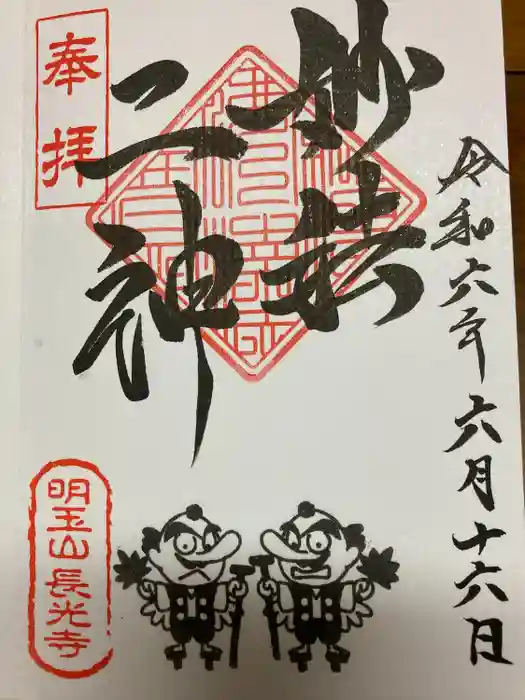 令和六年六月十六日
妙法
二神
奉拝
明玉山長光寺